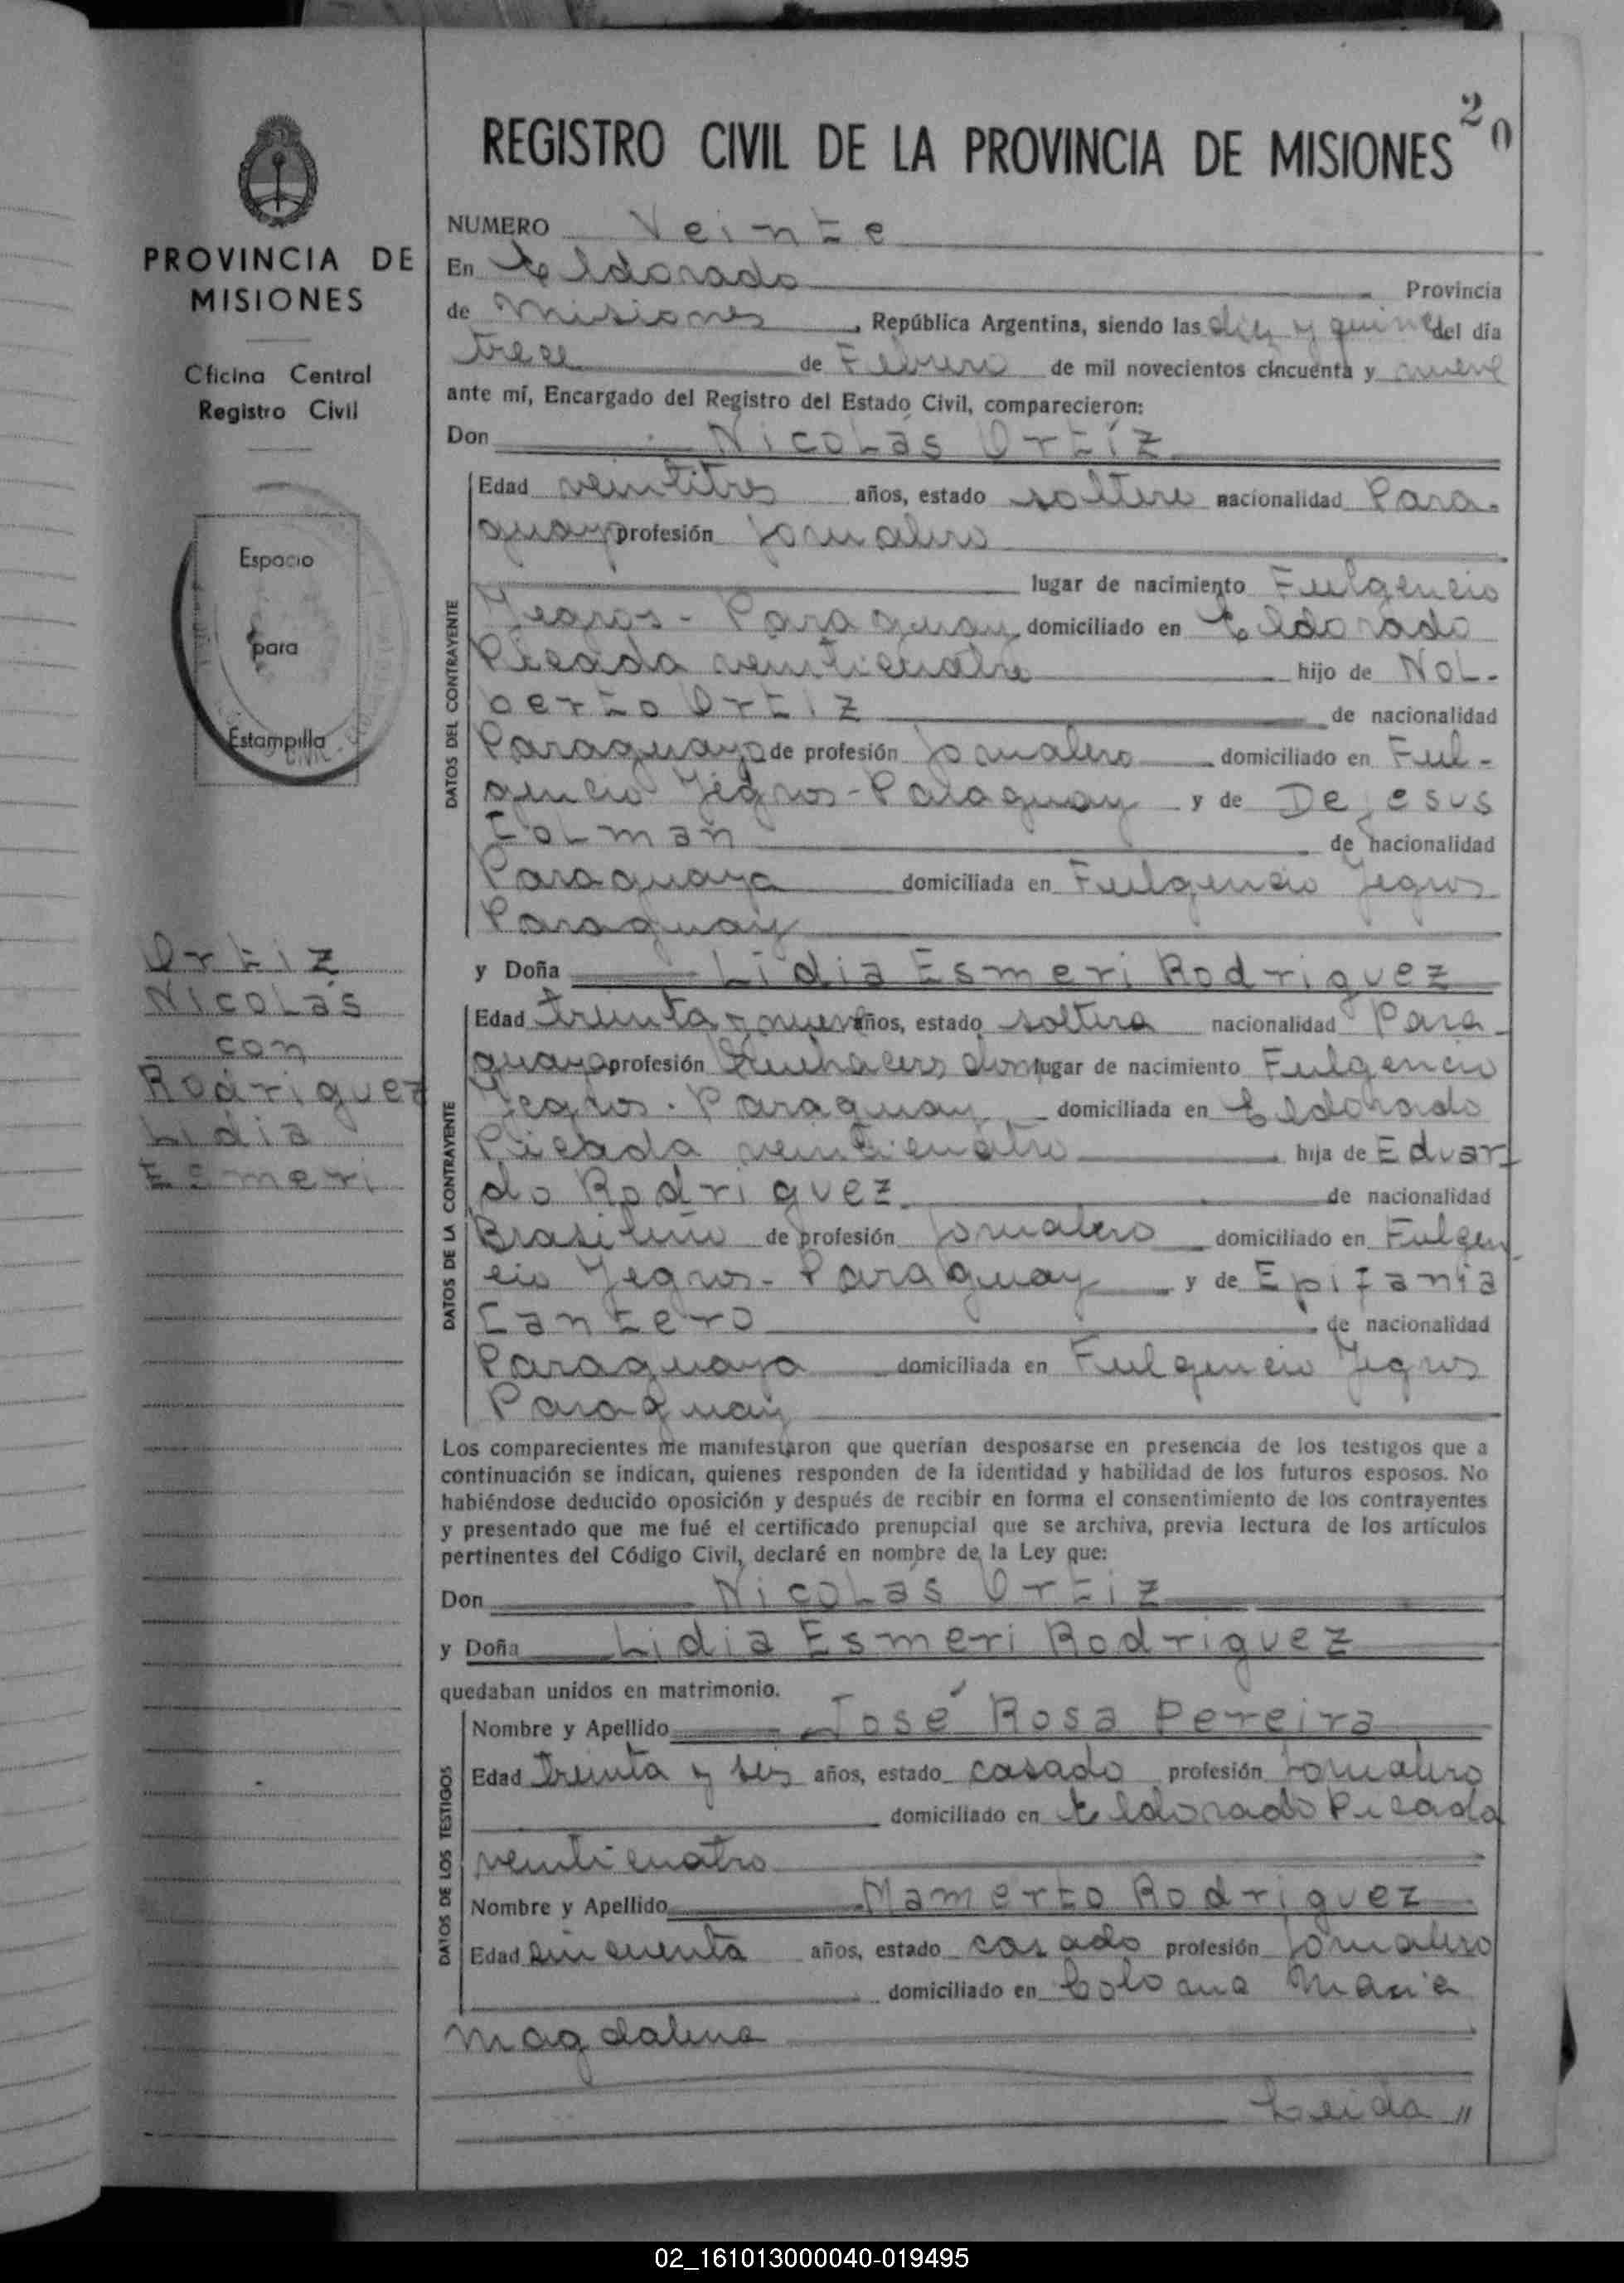 20
REGISTRO CIVIL DE LA PROVINCIA DE MISIONES
PROVINCIA DE
MISIONES
Oficina Central
Registro Civil
Espacio
para
Estampilla
Ortiz
Nicolás
con
Rodriguez
Lidia
Esmeri
NUMERO Veinte
En Eldorado Provincia
de Misiones, República Argentina, siendo las diez y quince del día
trece de Febrero de mil novecientos cincuenta y nueve
ante mí, Encargado del Registro del Estado Civil, comparecieron:
Don Nicolás Ortíz
DATOS DEL CONTRAYENTE
Edad veintitres años, estado soltero nacionalidad Para-
guayo profesión Jornalero
lugar de nacimiento Fulgencio
Yegros - Paraguay, domiciliado en Eldorado
Picada veinticuatro hijo de Nol-
berto Ortiz de nacionalidad
Paraguayo de profesión Jornalero domiciliado en Ful-
gencio Yegros - Paraguay y de De Jesus
Colman de nacionalidad
Paraguaya domiciliada en Fulgencio Yegros
Paraguay
y Doña Lidia Esmeri Rodriguez
DATOS DE LA CONTRAYENTE
Edad treinta y nueve años, estado soltera nacionalidad Para-
guaya profesión Quehaceres dom lugar de nacimiento Fulgencio
Yegros - Paraguay domiciliada en Eldorado
Picada veinticuatro hija de Eduar-
do Rodriguez de nacionalidad
Brasileño de profesión Jornalero domiciliado en Fulgen-
cio Yegros - Paraguay y de Epifania
Cantero de nacionalidad
Paraguaya domiciliada en Fulgencio Yegros
Paraguay
Los comparecientes me manifestaron que querían desposarse en presencia de los testigos que a
continuación se indican, quienes responden de la identidad y habilidad de los futuros esposos. No
habiéndose deducido oposición y después de recibir en forma el consentimiento de los contrayentes
y presentado que me fué el certificado prenupcial que se archiva, previa lectura de los artículos
pertinentes del Código Civil, declaré en nombre de la Ley que:
Don Nicolás Ortiz
y Doña Lidia Esmeri Rodriguez
quedaban unidos en matrimonio.
DATOS DE LOS TESTIGOS
Nombre y Apellido José Rosa Pereira
Edad treinta y seis años, estado casado profesión Jornalero
domiciliado en Eldorado Picada
veinticuatro
Nombre y Apellido Mamerto Rodriguez
Edad cincuenta años, estado casado profesión Jornalero
domiciliado en Colonia Maria
Magdalena
Leida "
02_161013000040-019495